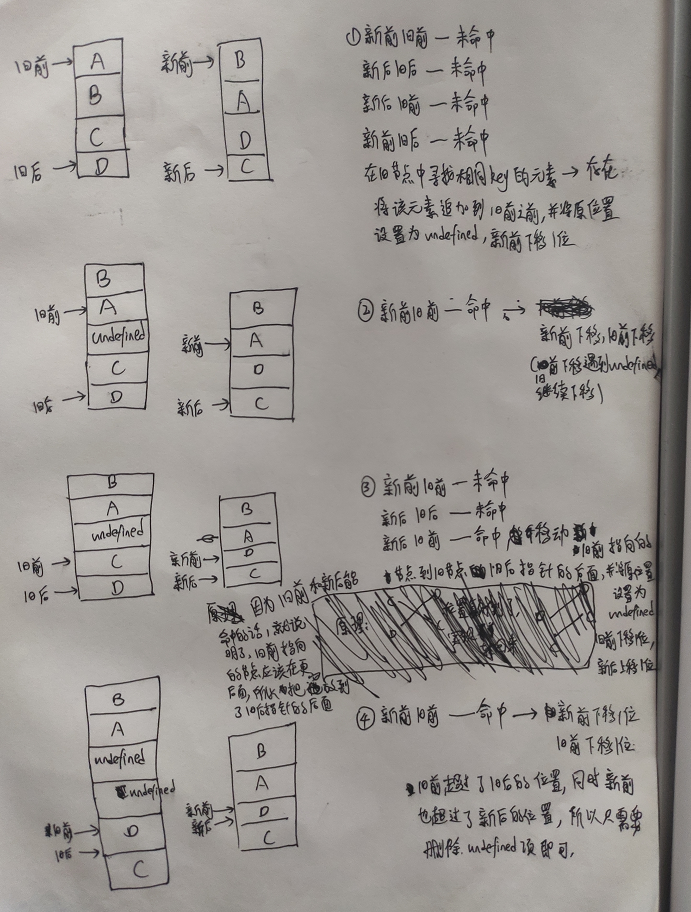 旧前 A
B
C
旧后 D
新前 B
A
D
新后 C
①新前旧前 — 未命中
新后旧后 — 未命中
新后旧前 — 未命中
新前旧后 — 未命中
在旧节点中寻找相同key的元素 → 存在
将该元素追加到旧前之前,并将原位置
设置为undefined,新前下移1位
B
旧前 A
undefined
C
旧后 D
B
新前 A
D
新后 C
②新前旧前 — 命中 →
新前下移,旧前下移
(旧前下移遇到undefined
继续下移)
B
A
undefined
旧前 C
旧后 D
B
A
新前 D
新后 C
③新前旧前 — 未命中
新后旧后 — 未命中
新后旧前 — 命中 移动 旧前指向的
节点到旧节点 旧后指针的后面,并将原位置
设置为
undefined
旧前下移1位,
新后上移1位
因为旧前和新后能
命中的话,就说
明了,旧前指向
的节点应该在更
后面,所以把 放到
了旧后指针的后面
原理:
B
A
undefined
undefined
旧前 D
旧后
C
B
A
新前 D
新后
C
④新前旧前 — 命中 → 新前下移1位
旧前下移1位.
旧前超过了旧后的位置,同时新前
也超过了新后的位置,所以只需要
删除undefined项即可.